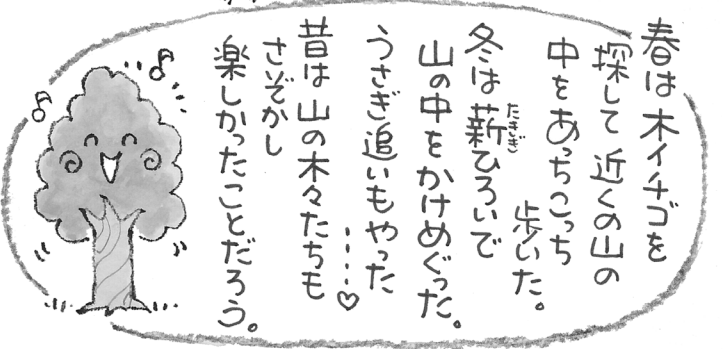 春は木イチゴを
探して近くの山の
中をあっちこっち
歩いた。
冬は薪ひろいで
たきぎ
山の中をかけめぐった。
うさぎ追いもやった
……♡
昔は山の木々たちも
さぞかし
楽しかったことだろう。